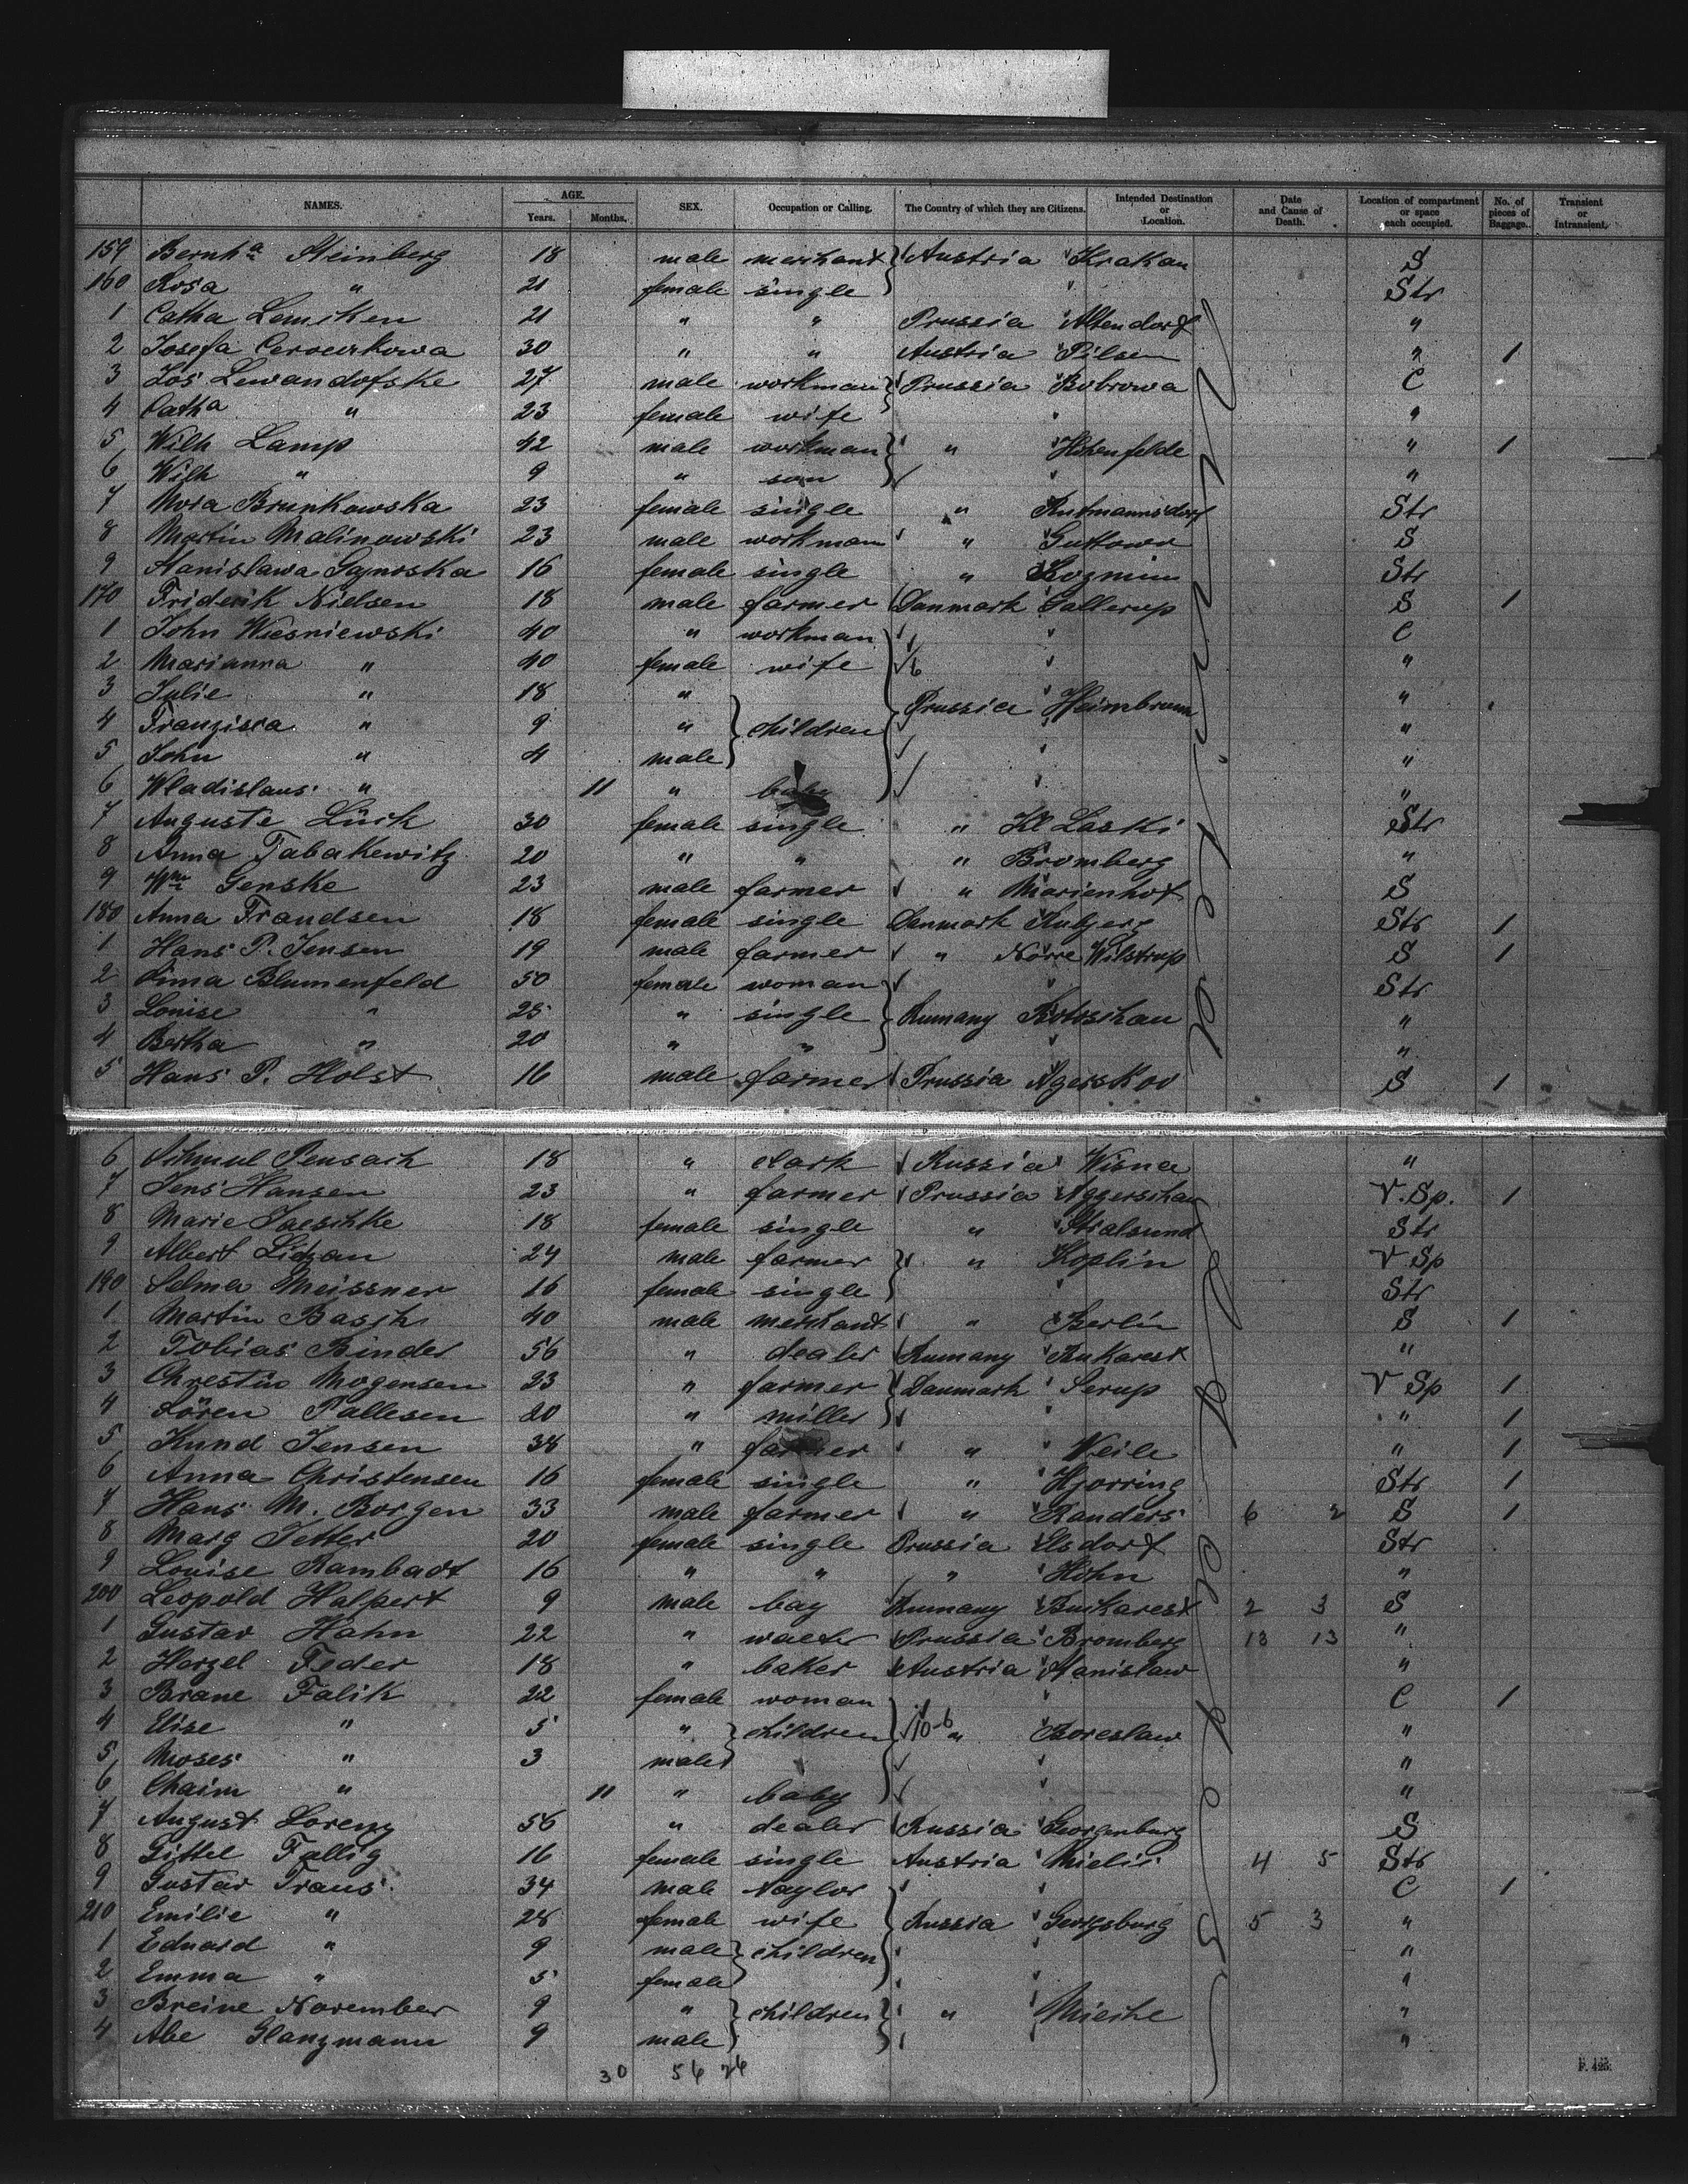 NAMES. AGE. Years. Months. SEX. Occupation or Calling. The Country of which they are Citizens. Intended Destination or Location. Date and Cause of Death. Location of compartment or space each occupied. No. of pieces of Baggage. Transient or Intransient.
159 Bernha Steinberg 18 male merchant Austria Krakau S
160 Rosa " 21 female single Str
1 Catha Lemcken 21 " " Prussia Altendorf "
2 Josefa 30 " " Austria Pilsen " 1
3 Jos Lewandofske 27 male workman Prussia Bobrowa C
4 Catha " 23 female wife "
5 Wilh Lamp 42 male workman " Hohenfelde " 1
6 Wilh " 9 " son "
7 Brunkowska 23 female single " Str
8 Martin Malinowski 23 male workman " S
9 Stanislawa 16 female single " Kozmin Str
170 Friderik Nielsen 18 male farmer Danmark Gallerup S 1
1 John Wiesniewski 40 " workman C
2 Marianna " 40 female wife 6 "
3 Julie " 18 " Prussia Heimbrunn "
4 Franzisca " 9 " children "
5 John " 4 male "
6 Wladislaus " 11 " baby "
7 Auguste Lück 30 female single " Kl Laski Str
8 Anna Tabakewitz 20 " " " Bromberg "
9 Wm Genske 23 male farmer " Marienhof S
180 Anna Frandsen 18 female single Danmark Rubjerg Str 1
1 Hans P. Jensen 19 male farmer " Nörre Wilstrup S 1
2 Blumenfeld 50 female woman Str
3 Louise " 25 " single Rumany "
4 Bertha " 20 " " "
5 Hans P. Holst 16 male farmer Prussia Agerskov S 1
6 Schmul Pensach 18 " clark Russia Wisna "
7 Jens Hansen 23 " farmer Prussia Aggerschau V. Sp. 1
8 Marie Jaeschke 18 female single " Stralsund Str
9 Albert 24 male farmer " Koplin V Sp
190 Selma Meissner 16 female single Str
1 Martin Basch 40 male merchant " Berlin S 1
2 Tobias Binder 56 " dealer Rumany Bukarest "
3 Chresten Mogensen 23 " farmer Danmark Serup V Sp 1
4 Sören Pallesen 20 " miller " 1
5 Knud Jensen 38 " farmer " Weile " 1
6 Anna Christensen 16 female single " Hjorring Str 1
7 Hans M. Borgen 33 male farmer " Randers 6 2 S 1
8 Marg Jetter 20 female single Prussia Elsdorf Str
9 Louise Rambadt 16 " " " Höhn "
200 Leopold Halpert 9 male bay Rumany Buckarest 2 3 S
1 Gustav Hahn 22 " waeter Prussia Bromberg 13 13 "
2 Herzel Feder 18 " baker Austria Stanislaw "
3 Brane Falik 22 female woman C 1
4 Elise " 5 " children 10-6 " Boreslaw "
5 Moses " 3 male "
6 Chaim " 11 " baby "
7 August Lorenz 56 " dealer Russia Georgenburg S
8 Gittel Fallig 16 female single Austria 4 5 Str
9 Gustav Traus 34 male Naylor C 1
210 Emilie " 28 female wife Russia Georgsburg 5 3 "
1 Eduard " 9 male children "
2 Emma " 5 female "
3 Breine November 9 " children " "
4 Abe Glanzmann 9 male "
30 56 26
F. 425.